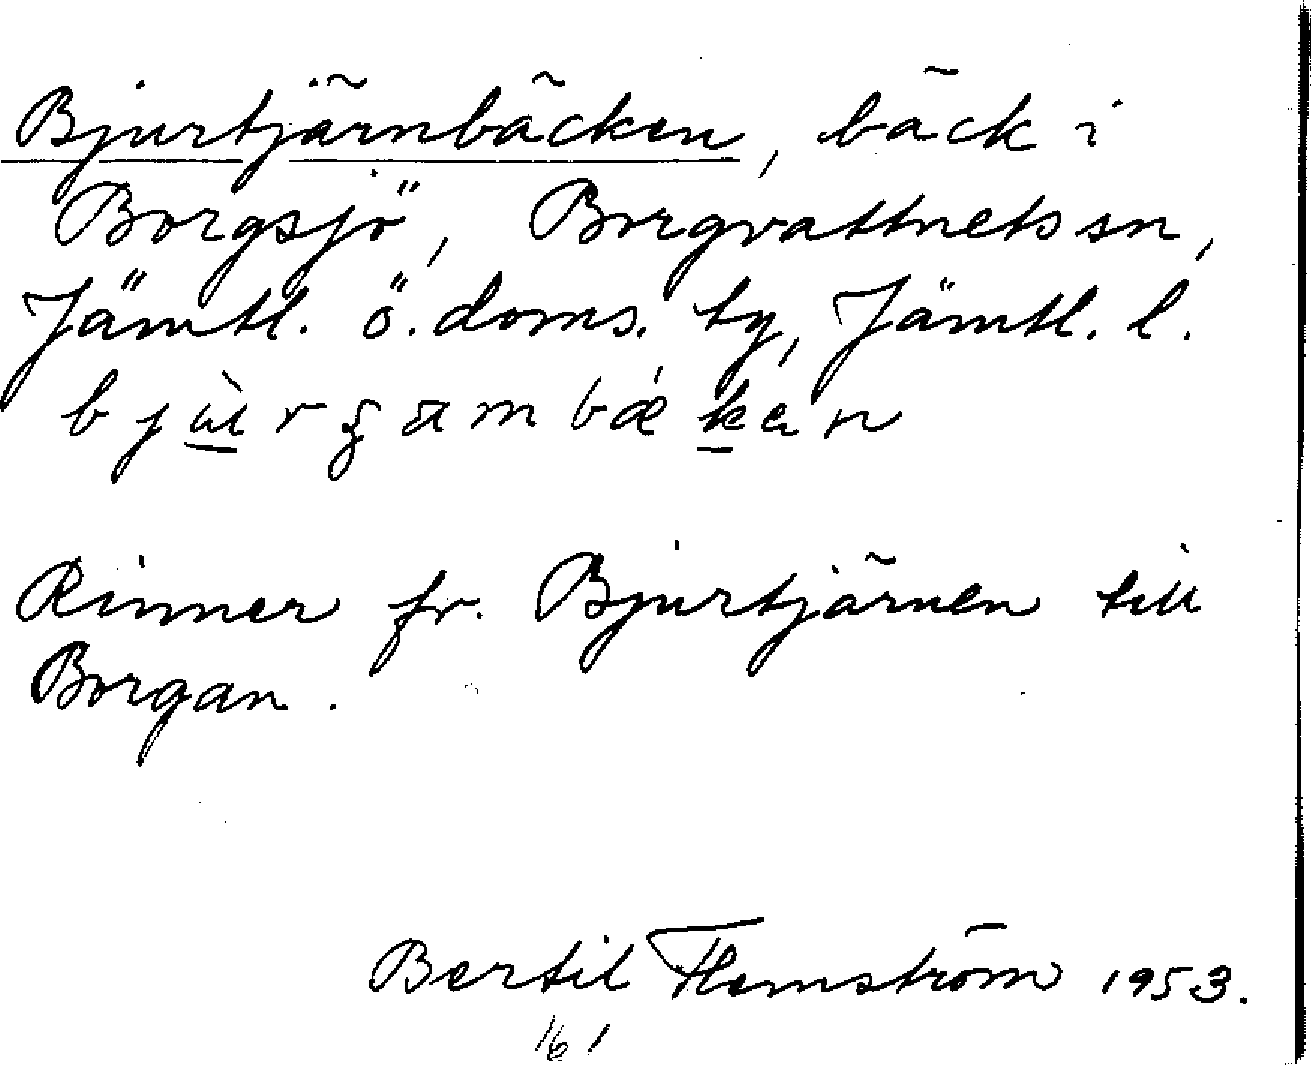 Bjurtjärnbäcken, bäck i
Borgsjö, Borgvattnets sn,
Jämtl. ö. doms. ty, Jämtl. l.
Rinner fr. Bjurtjärnen till
Borgan.
Bertil Flemström 1953.